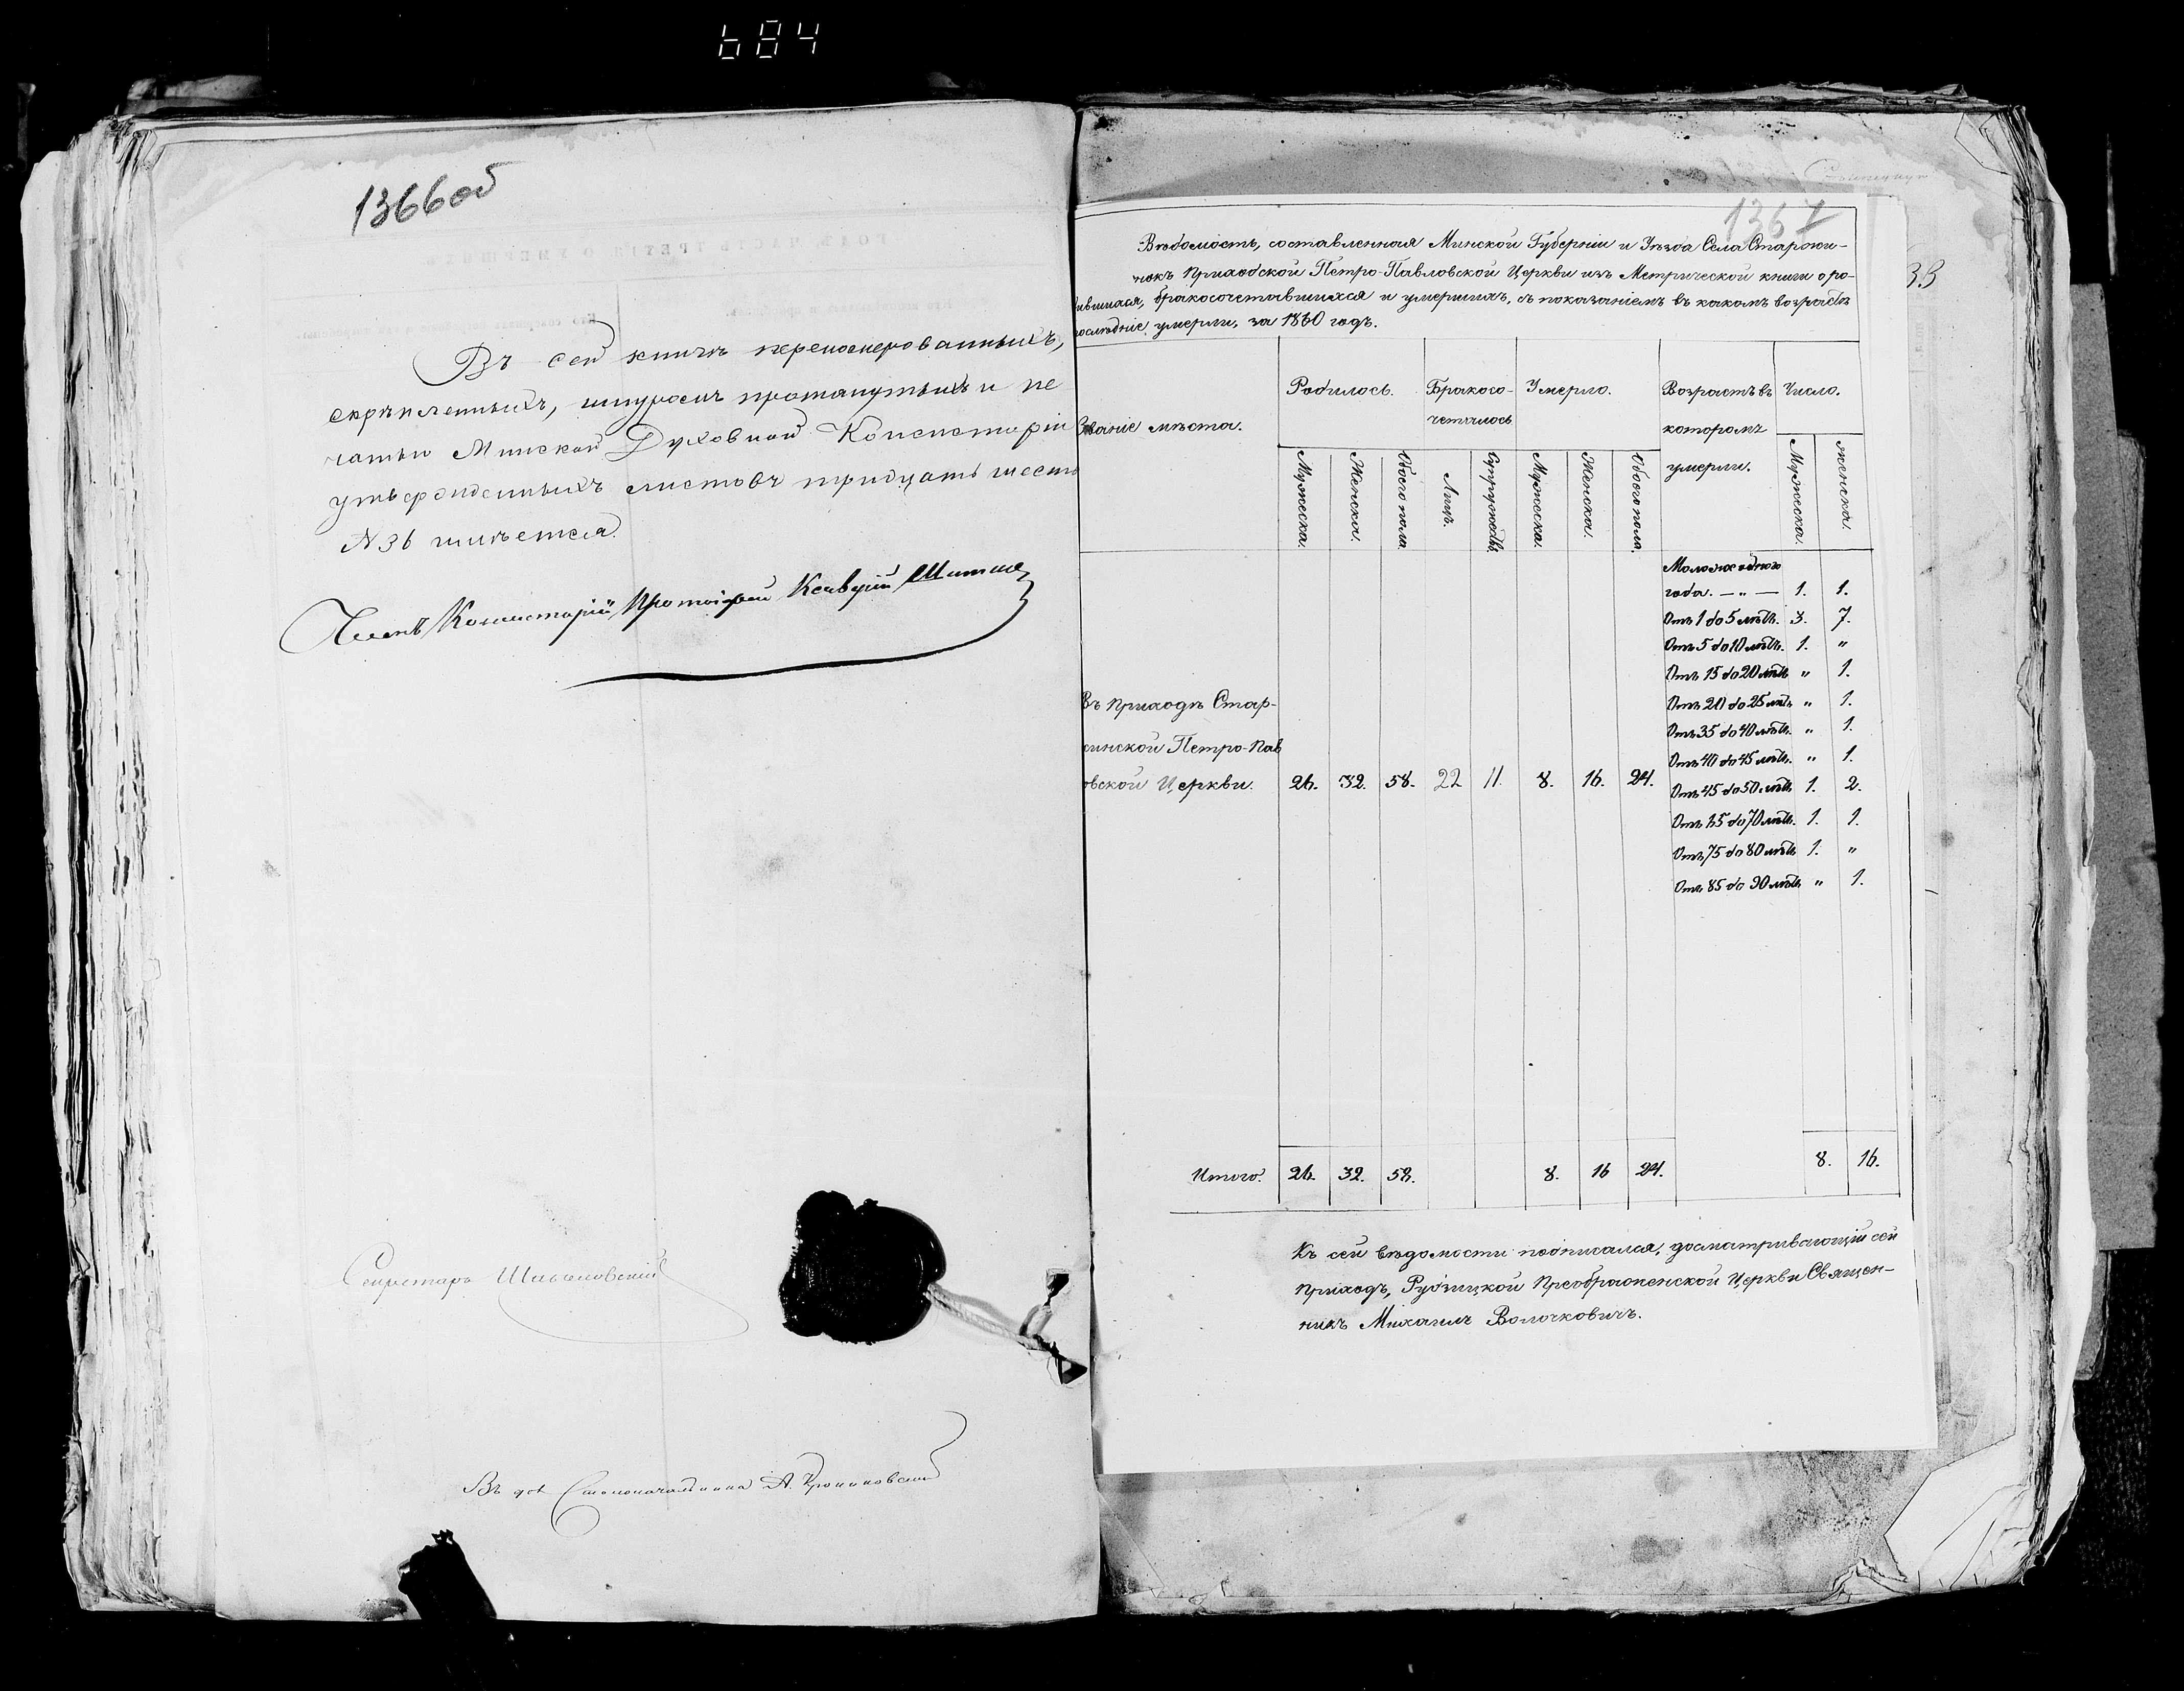 684
1366 об
Въ сей книгѣ перенумерованныхъ,
скрѣпленныхъ, шнуромъ протянутыхъ и пе
чатью Минской Духовной Консисторіи
утвержденныхъ листовъ тридцать шесть
№ 36 имѣется.
Членъ Консисторіи Протоіерей
Секретарь
Въ дол. Столоначальника А.
1367
33
Вѣдомость, составленная Минской Губерніи и Уѣзда Села
Приходской Петро-Павловской Церкви изъ Метрической книги о ро-
дившихся, бракосочетавшихся и умершихъ, съ показаніемъ въ какомъ возрастѣ
послѣдніе умерли, за 1860 годъ.
Званіе мѣста. Родилось. Бракосо- Умерло. Возрастъ въ Число.
четалось котором
умерли.
Мужеска. Женска. Обоего пола. Лицъ. Супружествъ. Мужеска. Женска. Обоего пола. Мужеска. Женска.
Моложе одного
года. — „ — 1. 1.
Отъ 1 до 5 лѣтъ. 3. 7.
Отъ 5 до 10 лѣтъ. 1. „
Отъ 15 до 20 лѣтъ „ 1.
Отъ 20 до 25 лѣтъ „ 1.
Отъ 35 до 40 лѣтъ. „ 1.
Отъ 40 до 45 лѣтъ. „ 1.
Отъ 45 до 50 лѣтъ 1. 2.
Отъ 65 до 70 лѣтъ. 1. 1.
Отъ 75 до 80 лѣтъ 1. „
Отъ 85 до 90 лѣтъ „ 1.
Въ приходѣ Стар-
инской Петро-Пав
овской Церкви. 26. 32. 58. 22 11. 8. 16. 24.
Итого. 26. 32. 58. 8. 16 24. 8. 16.
Къ сей вѣдомости подписался, досматривающій сей
приходъ, Рубѣицкой Преображенской Церкви Священ-
никъ Михаилъ Волочковичъ.